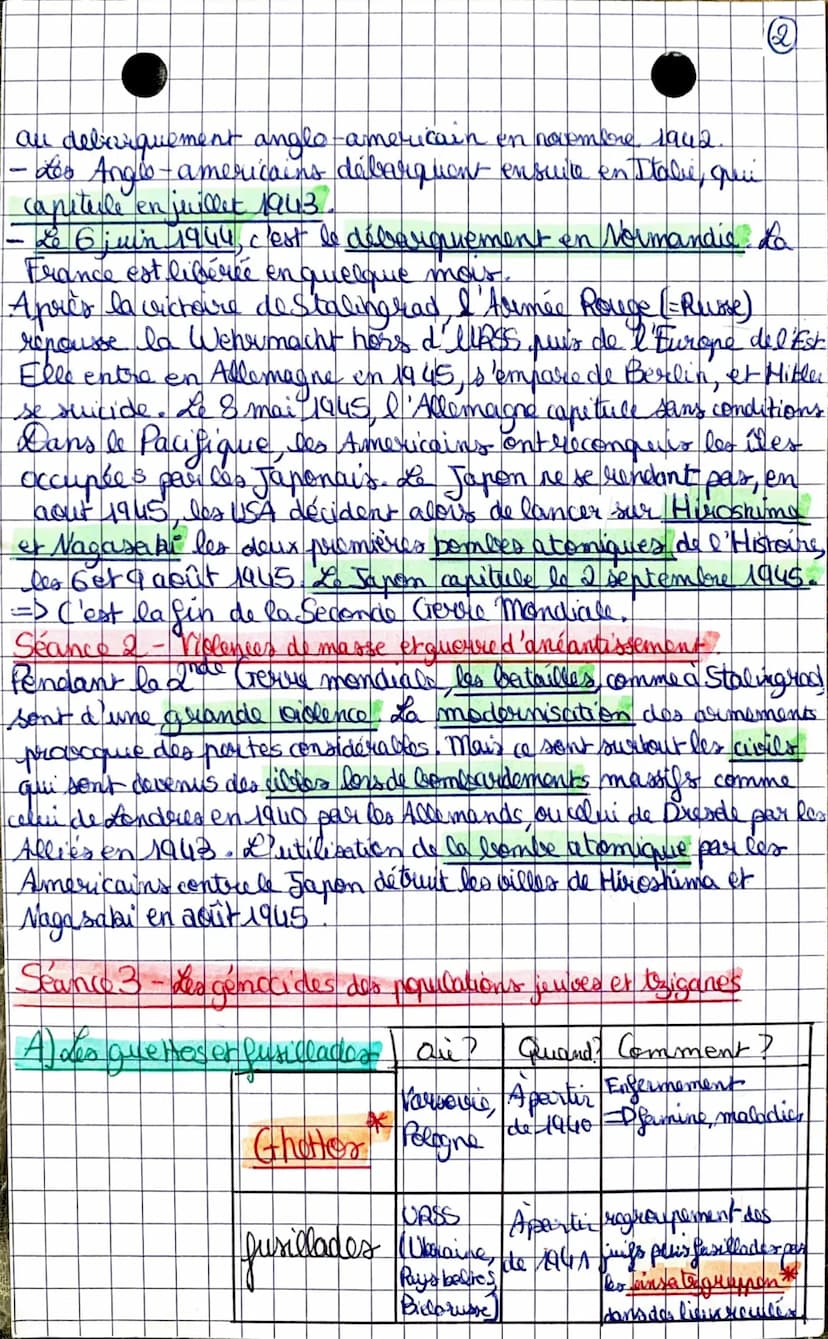 2
au debarquement anglo-americain en novembre 1942.
- Les Anglo-americains débarquent ensuite en Italie, qui
capitule en juillet 1943.
- Le 6 juin 1944, c'est le débarquement en Normandie. La
France est libérée en quelque mois.
Après la victoire de Stalingrad, l'Armée Rouge (=Russe)
repousse la Wehrmacht hors d'URSS puis de l'Europe de l'Est
Elle entre en Allemagne en 1945, s'empare de Berlin, et Hitler
se suicide. Le 8 mai 1945, l'Allemagne capitule sans conditions
Dans le Pacifique, les Americains ont reconquis les îles
occupées par les Japonais. Le Japon ne se rendant pas, en
aout 1945, les USA décident alors de lancer sur Hiroshima
et Nagasaki les deux premières bombes atomiques de l'Histoire,
les 6 et 9 août 1945. Le Japon capitule le 2 septembre 1945.
=> C'est la fin de la Seconde Gerre Mondiale.
Séance 2 - Violences de masse et guerre d'anéantissement.
Pendant la 2nde Gerre mondiale, les batailles, comme à Stalingrad,
sont d'une grande violence. La modernisation des armements
provocque des pertes considérables. Mais ce sont surtout les civils
qui sont devenus des cibles lors de bombardements massifs comme
celui de Londres en 1940 par les Allemands, ou celui de Dresde par les
Alliés en 1943. L'utilisation de la bombe atomique par les
Americains contre le Japon détruit les villes de Hiroshima et
Nagasaki en août 1945.
Séance 3 - Les génocides des populations jeuives et tziganes
A) Les guettos et fusillades
où? Quand? Comment?
Ghettos* Varsovie, Pologne À partir de 1940 Enfermement => famine, maladies
fusillades URSS (Ukraine, Pays baltes, Biélorussie) À partir de 1941 regroupement des juifs puis fusillades par les einsatzgruppen* dans des lieux reculés